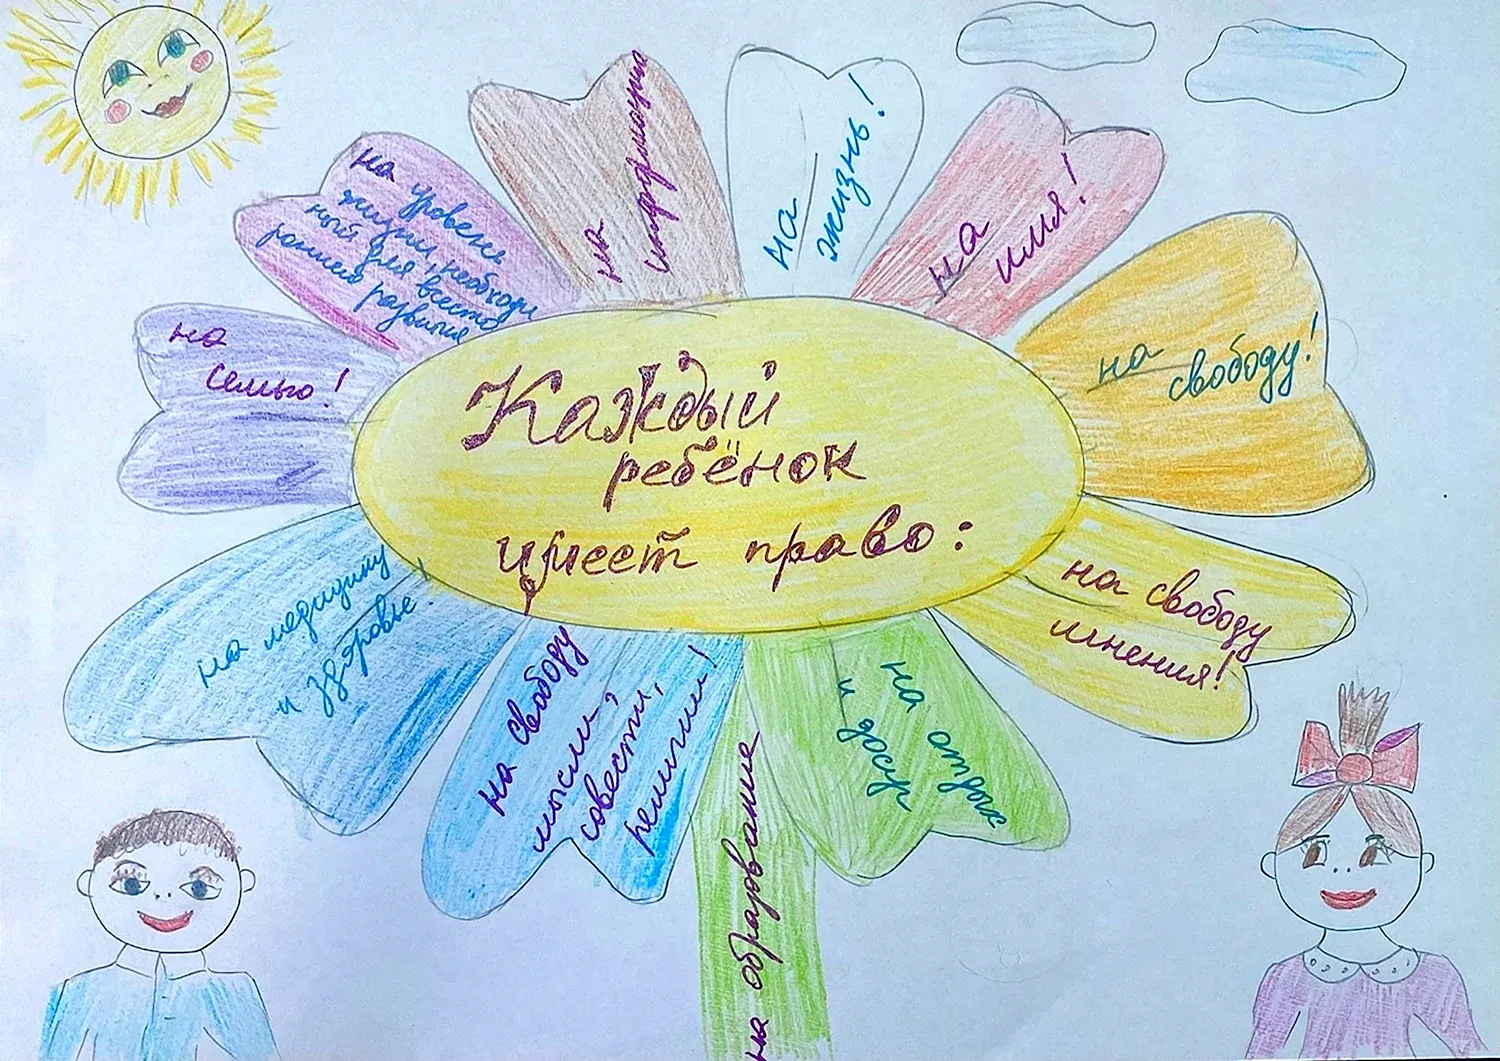 Каждый
ребёнок
имеет право:
на
жизнь!
на
имя!
на
свободу!
на свободу
мнения!
на отдых
и досуг
на образование
на свободу
мысли,
совести,
религии!
на медицину
и здоровье!
на
семью!
на уровень
жизни, необходи
мый для всесто
роннего развития
на
информацию